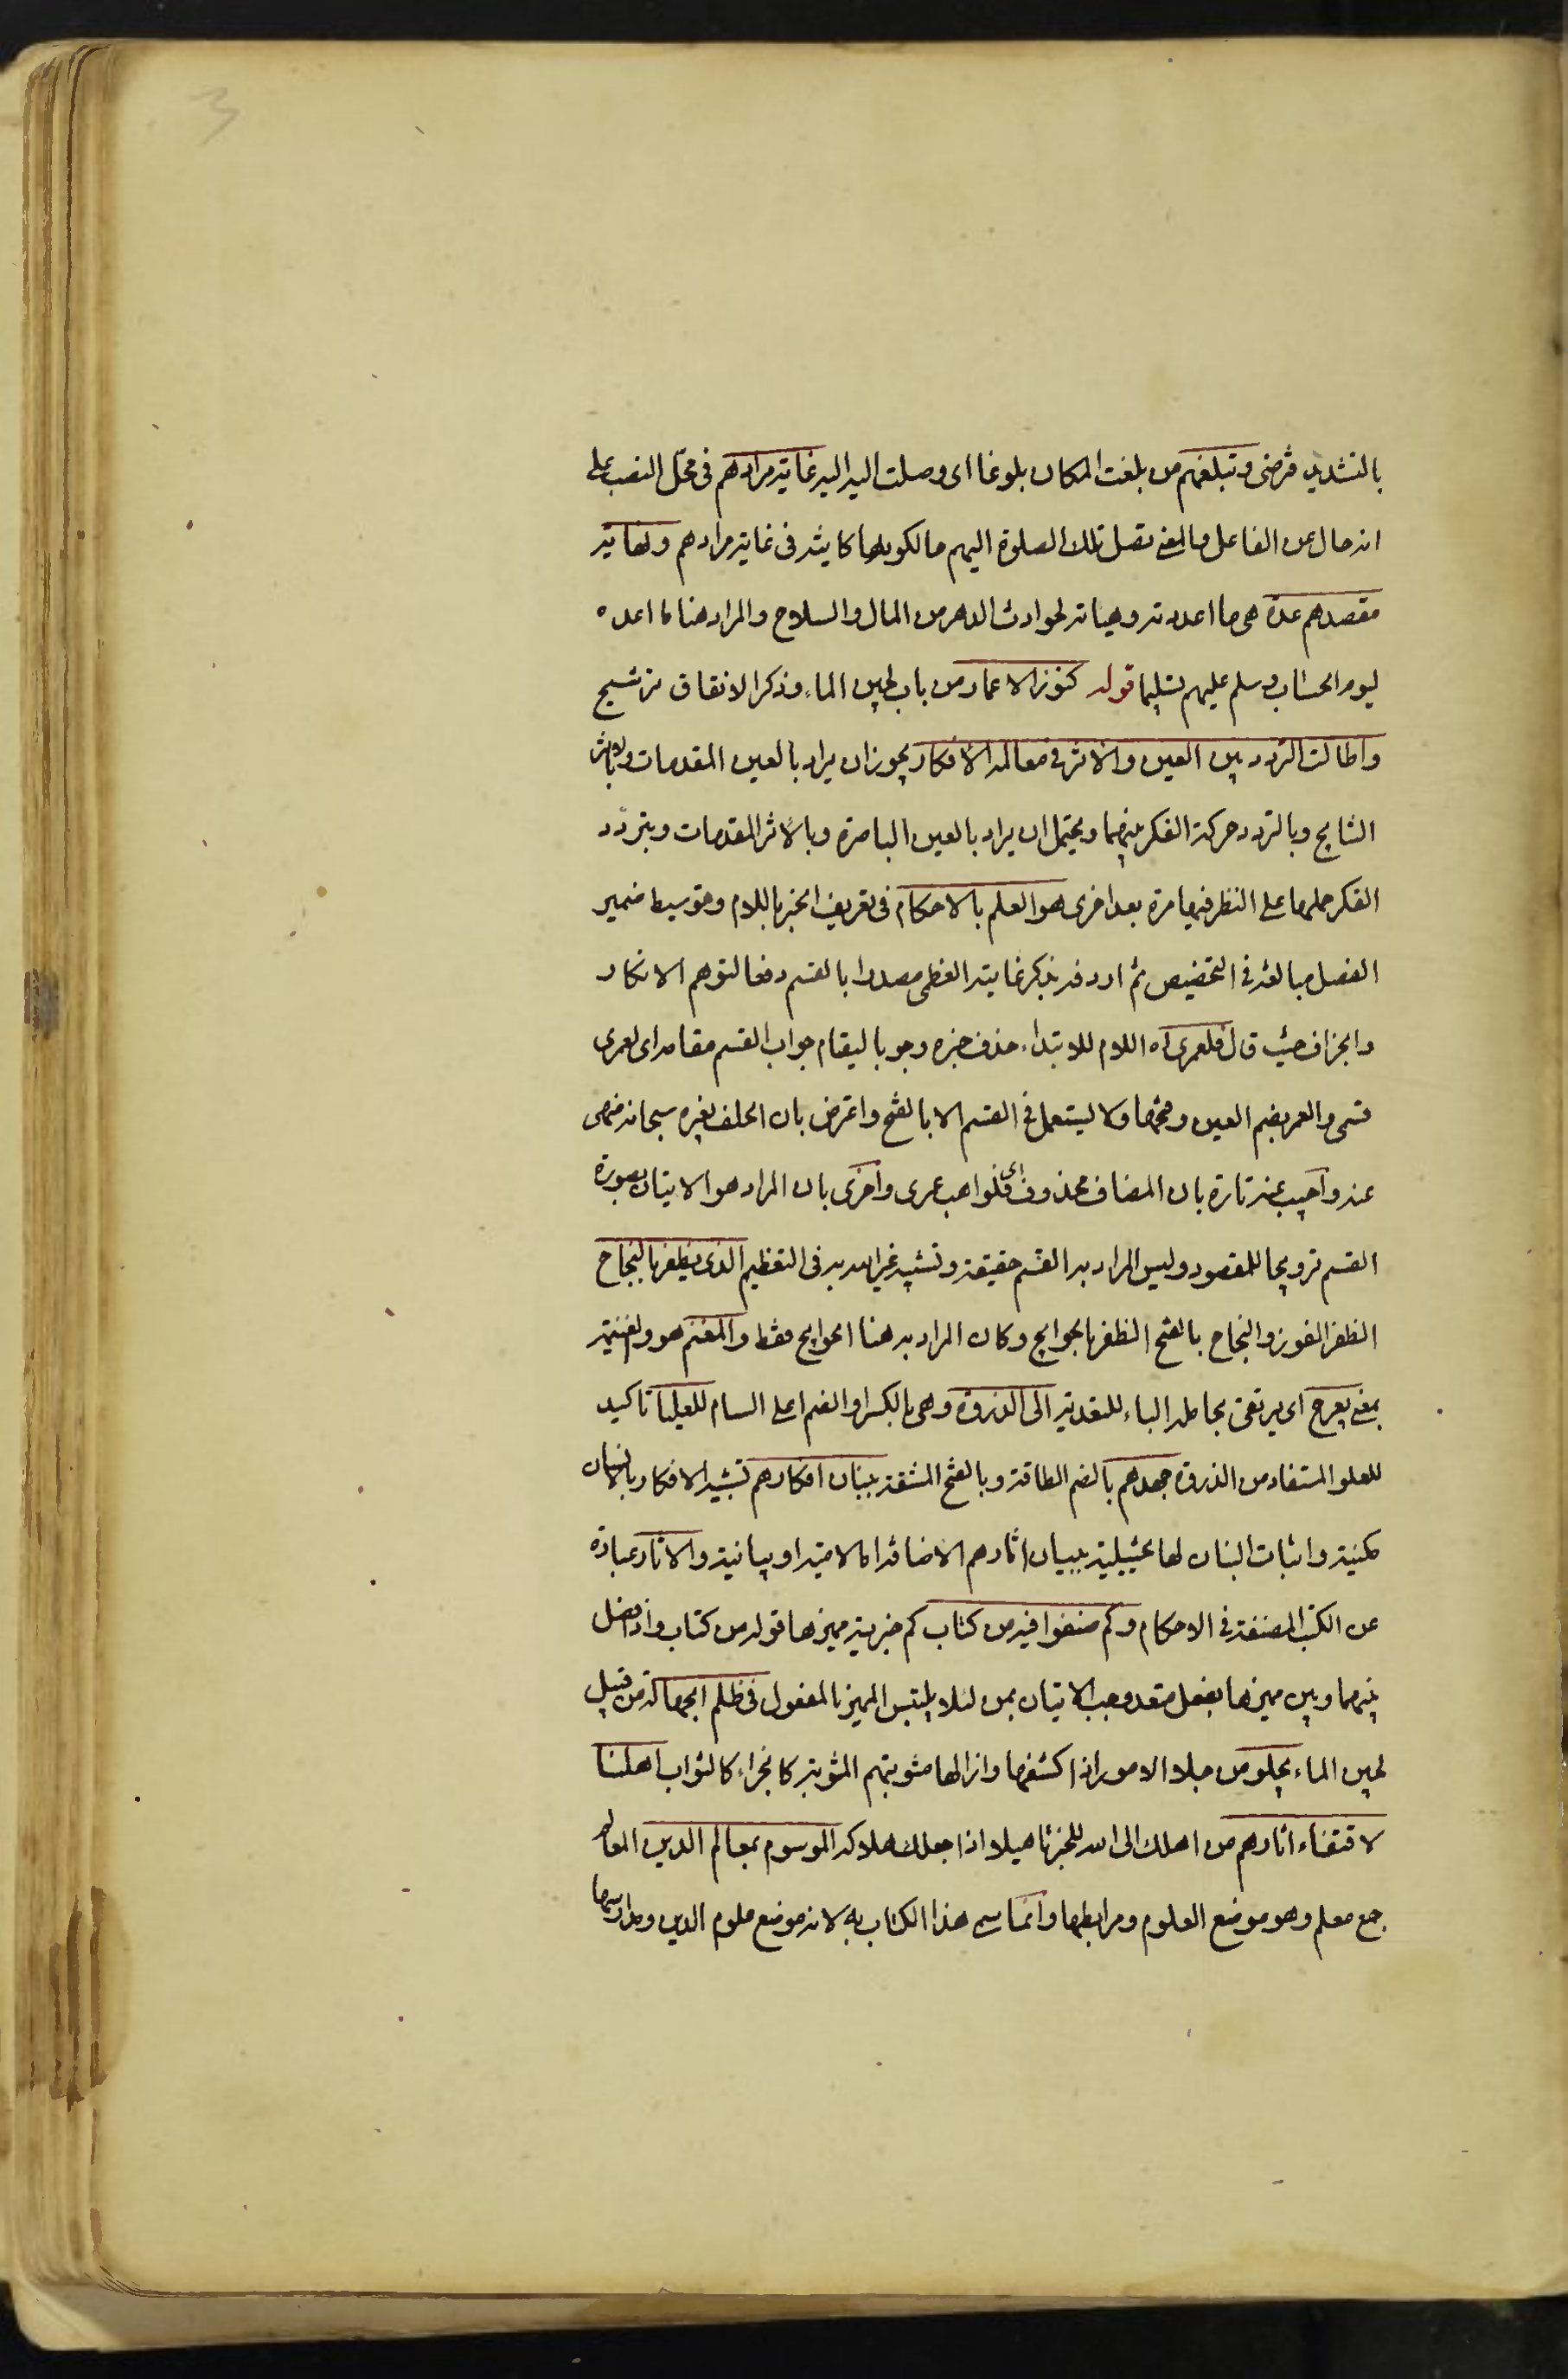 بالتشديد فرضى وتبلغهم من بلغت المكان بلوغا اى وصلت اليه اليه غاية مرادهم فى محل النصب على
انه حال عن الفاعل والمعنى تصل تلك الصلوة اليهم حالكونها كاينة فى غاية مرادهم ونهاية
مقصدهم عدة هى ما اعددته وهياته لحوادث الدهر من المال والسلاح والمراد هنا ما اعده
ليوم الحساب وسلم عليهم تسليما قوله كنوز الاعمار من باب لجين الماء وذكر الانفاق ترشيح
واطالت التردد بين العين والاثر فى معالم الافكار يجوز ان يراد بالعين المقدمات وبالاثر
النتايج وبالتردد حركة الفكر بينهما ويحتمل ان يراد بالعين الباصرة وبالاثر المقدمات وبتردد
الفكر حملها على النظر فيها مرة بعد اخرى هو العلم بالاحكام فى تعريف الخبر باللام وتوسيط ضمير
الفصل مبالغة فى التخصيص ثم اردفه بذكر غايته العظمى مصدرا بالقسم دفعا لتوهم الانكار
والجزاف حيث قال فلعمرى اه اللام للابتداء حذف خبره وجوبا لقيام جواب القسم مقامه اى لعمرى
قسمى والعمر بضم العين وفتحها ولا يستعمل فى القسم الا بالفتح واعترض بان الحلف بغيره سبحانه منهى
عنه واجيب عنه تارة بان المضاف محذوف اى فلواهب عمرى واخرى بان المراد هو الاتيان بصورة
القسم ترويجا للمقصود وليس المراد به القسم حقيقة وتشبيه غير الله به فى التعظيم الذى يظفر بالنجاح
الظفر الفوز والنجاح بالفتح الظفر بالحوايج وكان المراد به هنا الحوايج فقط والمغنم هو والغنيمة
بمعنى يعرج اى يرتقى بحامله الباء للتعدية الى الذروة وهى بالكسر او الضم اعلى السنام للعليا تاكيد
للعلو المستفاد من الذروة جهدهم بالضم الطاقة وبالفتح المشقة ببنان افكارهم تشبيه الافكار بالانسان
مكنية واثبات البنان لها تخييلية ببيان اثارهم الاضافة اما لامية او بيانية والاثار عبارة
عن الكتب المصنفة فى الاحكام وكم صنفوا فيه من كتاب كم خبرية مميزها قوله من كتاب واذا فصل
بينهما وبين مميزها بفعل متعد وجب الاتيان بمن لئلا يلتبس المميز بالمفعول فى ظلم الجهالة من قبيل
لجين الماء يجلو من جلا الامور اذا كشفها وازالها مثوبتهم المثوبة كالجزاء كالثواب اهلنا
لاقتفاء اثارهم من اهلك الى الله للخير تاهيلا اذا جعلك اهلا له الموسوم بمعالم الدين المعالم
جمع معلم وهو موضع العلوم ومرابطها وانما سمى هذا الكتاب به لانه موضع علوم الدين ومدارسها